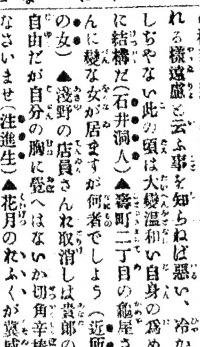 れる樣遠慮と云ふ事を知らねば惡い、冷か
しぢやない此の頃は大變温和い自身の爲め
に結構だ(石井洞人)▲壽町二丁目の龜屋さ
んに變な女が居ますが何者でしよう(近所
の女)▲淺野の店員さんお取消しは貴郎の
自由だが自分の胸に覺へはないか切角辛棒
なさいませ(注進生)▲花月のおふくが